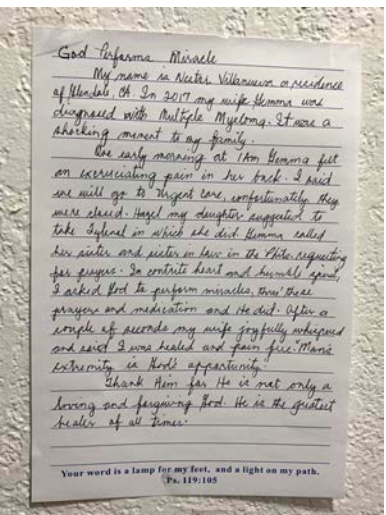 God Performs Miracle
My name is Nestor Villanueva a residence
of Glendale, CA. In 2017 my wife Gemma was
diagnosed with Multiple Myeloma. It was a
shocking moment to my family.
One early morning at 1AM Gemma felt
an excruciating pain in her back. I said
we will go to Urgent Care, unfortunately they
were closed. Hazel my daughter suggested to
take Tylenol in which she did. Gemma called
her sister and sister in law in the Phils. requesting
for prayers. In contrite heart and humble spirit,
I asked God to perform miracles, thru' these
prayers and medication and He did. After a
couple of seconds my wife joyfully whispered
and said I was healed and pain free. "Man's
extremity is God's opportunity."
Thank Him for He is not only a
loving and forgiving God. He is the greatest
healer of all times.
Your word is a lamp for my feet, and a light on my path.
Ps. 119:105